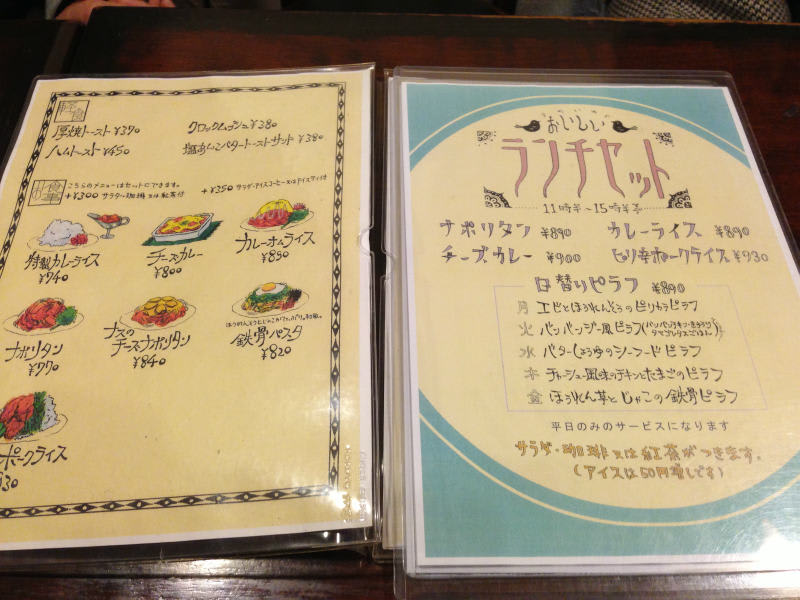 軽食
厚焼トースト ¥370
クロックムッシュ ¥380
ハムトースト ¥450
塩あんこバタートーストサット ¥380
お食事
こちらのメニューはセットにできます。
+¥300 サラダ・珈琲又は紅茶付
+¥350 サラダ・アイスコーヒー又はアイスティ付
特製カレーライス
¥740
チーズカレー
¥800
カレーオムライス
¥890
ナポリタン
¥770
ナスの
チーズナポリタン
¥840
鉄骨パスタ
¥820
ポークライス
930
おいしい
ランチセット
11時半~15時半
ナポリタン ¥890
カレーライス ¥890
チーズカレー ¥900
ピリ辛ポークライス ¥930
日替りピラフ ¥890
月 エビとほうれんそうのピリカラピラフ
火 バンバンジー風ピラフ
水 バターしょうゆのシーフードピラフ
木 チャーシュー風味のチキンとたまごのピラフ
金 ほうれん草とじゃこの鉄骨ピラフ
平日のみのサービスになります
サラダ・珈琲又は紅茶がつきます。
(アイスは50円増しです)